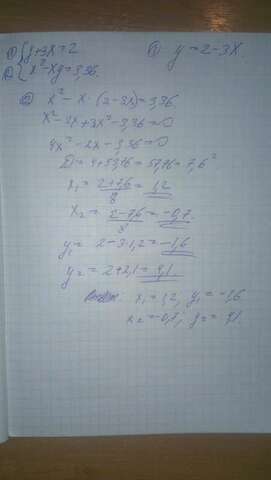 ① { y+3x=2 ① y = 2-3x.
② { x²-xy=3,36.
② x² - x · (2-3x)=3,36.
x² - 2x+3x² - 3,36 = 0
4x² - 2x - 3,36 = 0
D = 4+53,76 = 57,76 = 7,6²
x₁ = 2+7,6 / 8 = 1,2
x₂ = 2-7,6 / 8 = -0,7.
y₁ = 2-3·1,2 = -1,6
y₂ = 2+2,1 = 4,1.
x₁ = 1,2, y₁ = -1,6
x₂ = -0,7; y₂ = 4,1.